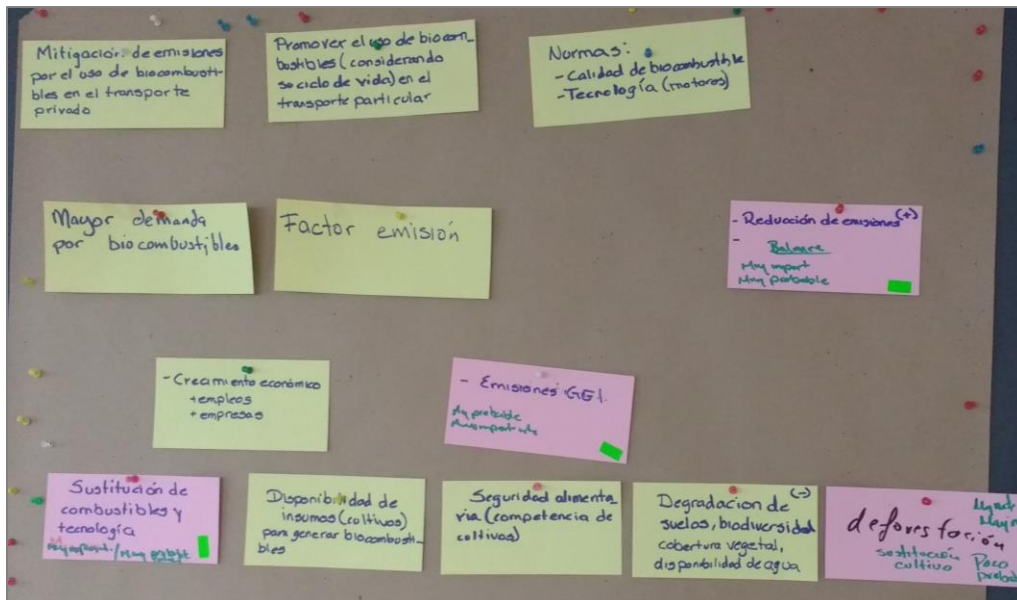 Mitigación de emisiones
por el uso de biocombusti-
bles en el transporte
privado
Promover el uso de biocom-
bustibles (considerando
su ciclo de vida) en el
transporte particular
Normas:
- Calidad de biocombustible
- Tecnología (motores)
Mayor demanda
por biocombustibles
Factor emisión
- Reducción de emisiones (+)
-
Balance
Muy import
Muy probable
- Crecimiento económico
+empleos
+empresas
- Emisiones GEI.
Muy probable
Sustitución de
combustibles y
tecnología
/Muy probabl
Disponibilidad de
insumos (cultivos)
para generar biocombusti-
bles
Seguridad alimenta
ria (competencia de
cultivos)
Degradacion de (-)
suelos, biodiversidad
cobertura vegetal,
disponibilidad de agua
deforestación
sustitución
cultivo
Poco
probab